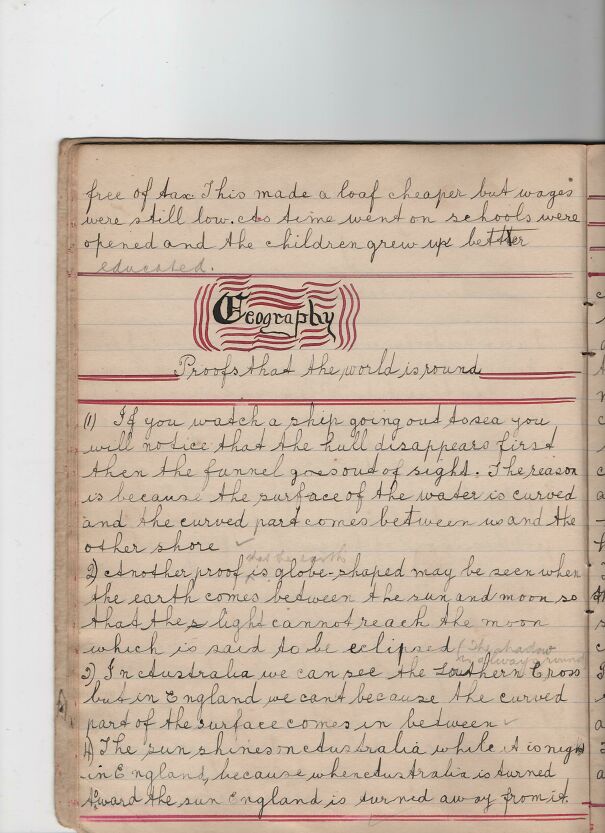 free of tax This made a loaf cheaper but wages
were still low. As time went on schools were
opened and the children grew up better
educated.
Geography
Proofs that the world is round
(1) If you watch a ship going out to sea you
will notice that the hull disappears first
then the funnel goes out of sight. The reason
is because the surface of the water is curved
and the curved part comes between us and the
other shore
that the earth
2) Another proof is globe-shaped may be seen when
the earth comes between the sun and moon so
that the light cannot reach the moon
which is said to be eclipsed (The shadow
is always round
3) In Australia we can see the Southern Cross
but in England we cant because the curved
part of the surface comes in between
4) The sun shines on Australia while it is night
in England, because when Australia is turned
toward the sun England is turned away from it.